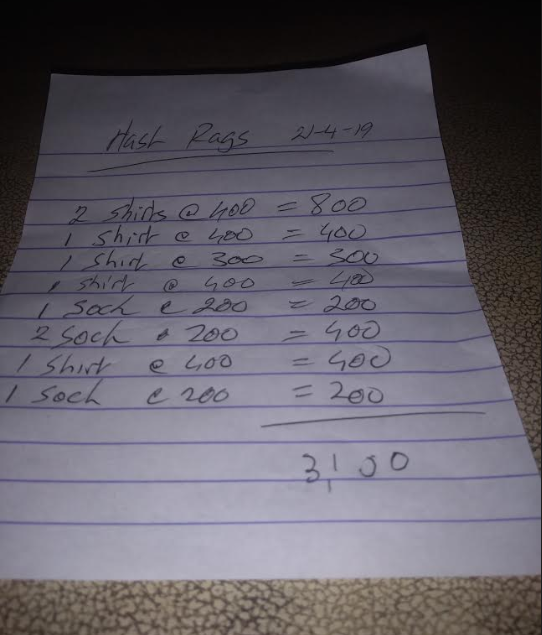 Hash Rags 21-4-19
2 shirts @ 400 = 800
1 shirt @ 400 = 400
1 shirt @ 300 = 300
1 shirt @ 400 = 400
1 sock @ 200 = 200
2 sock @ 200 = 400
1 shirt @ 400 = 400
1 sock @ 200 = 200
3,100